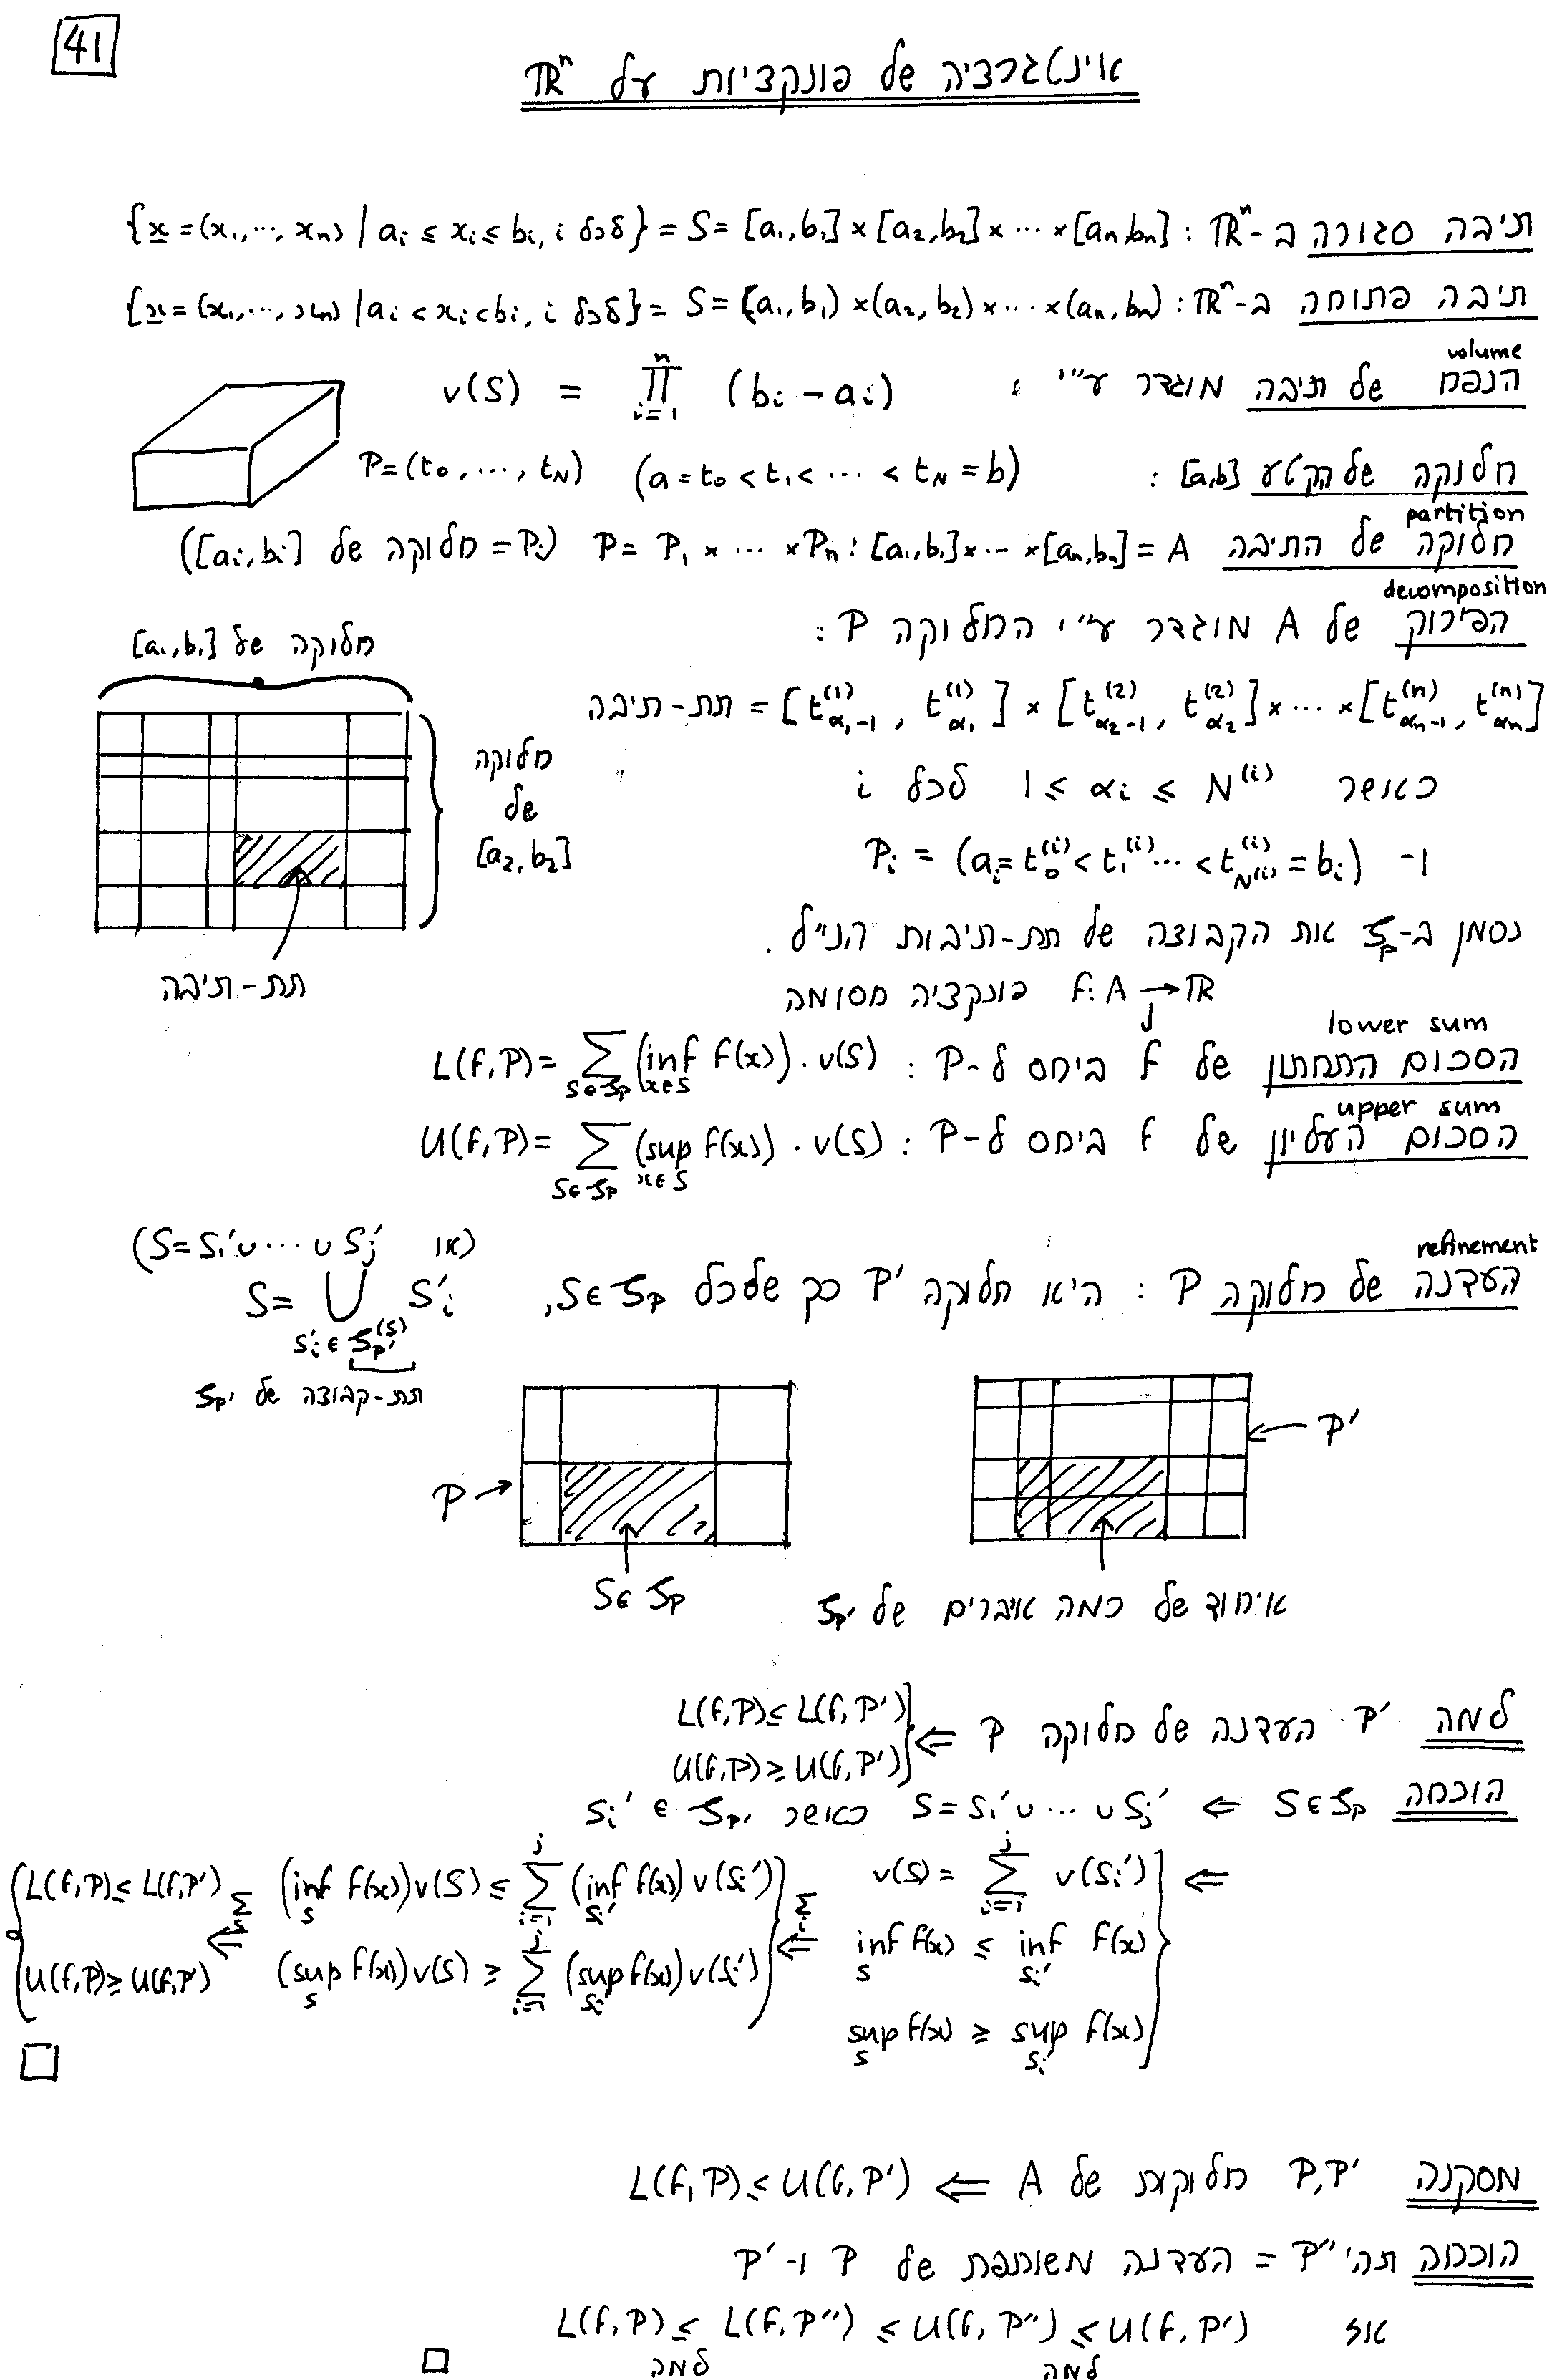 41
אינטגרציה של פונקציות על ℝⁿ
תיבה סגורה ב-ℝⁿ: {x̲ = (x₁,⋯,xₙ) | aᵢ ≤ xᵢ ≤ bᵢ, i לכל} = S = [a₁,b₁]×[a₂,b₂]×⋯×[aₙ,bₙ]
תיבה פתוחה ב-ℝⁿ: {x̲ = (x₁,⋯,xₙ) | aᵢ < xᵢ < bᵢ, i לכל} = S = (a₁,b₁)×(a₂,b₂)×⋯×(aₙ,bₙ)
volume
הנפח של תיבה מוגדר ע"י: v(S) = ∏_{i=1}^{n} (bᵢ - aᵢ)
חלוקה של הקטע [a,b]: P = (t₀,⋯,t_N) (a = t₀ < t₁ < ⋯ < t_N = b)
partition
חלוקה של התיבה A = [a₁,b₁]×⋯×[aₙ,bₙ]: P = P₁×⋯×Pₙ (Pᵢ = חלוקה של [aᵢ,bᵢ])
decomposition
הפירוק של A מוגדר ע"י החלוקה P:
תת-תיבה = [t^{(1)}_{α₁-1}, t^{(1)}_{α₁}] × [t^{(2)}_{α₂-1}, t^{(2)}_{α₂}] × ⋯ × [t^{(n)}_{αₙ-1}, t^{(n)}_{αₙ}]
כאשר 1 ≤ αᵢ ≤ N^{(i)} לכל i
ו- Pᵢ = (aᵢ = t₀^{(i)} < t₁^{(i)} ⋯ < t^{(i)}_{N^{(i)}} = bᵢ)
חלוקה של [a₁,b₁]
חלוקה
של
[a₂,b₂]
תת-תיבה
נסמן ב-𝒮_P את הקבוצה של תת-תיבות הנ"ל.
f: A → ℝ פונקציה חסומה
lower sum
הסכום התחתון של f ביחס ל-P: L(f,P) = ∑_{S∈𝒮_P} (inf_{x∈S} f(x))·v(S)
upper sum
הסכום העליון של f ביחס ל-P: U(f,P) = ∑_{S∈𝒮_P} (sup_{x∈S} f(x))·v(S)
refinement
העדנה של חלוקה P: היא חלוקה P' כך שלכל S∈𝒮_P,
(או S = S₁'∪⋯∪Sⱼ')
S = ⋃_{Sᵢ'∈𝒮_{P'}^{(S)}} Sᵢ'
תת-קבוצה של 𝒮_{P'}
P →
S∈𝒮_P
← P'
איחוד של כמה איברים של 𝒮_{P'}
למה P' העדנה של חלוקה P ⇐ { L(f,P) ≤ L(f,P')
U(f,P) ≥ U(f,P')
הוכחה S∈𝒮_P ⇐ S = S₁'∪⋯∪Sⱼ' כאשר Sᵢ' ∈ 𝒮_{P'}
⇐ v(S) = ∑_{i=1}^{j} v(Sᵢ')
inf_S f(x) ≤ inf_{Sᵢ'} f(x)
sup_S f(x) ≥ sup_{Sᵢ'} f(x)
∑ᵢ ⇐ (inf_S f(x))v(S) ≤ ∑_{i=1}^{j} (inf_{Sᵢ'} f(x))v(Sᵢ')
(sup_S f(x))v(S) ≥ ∑_{i=1}^{j} (sup_{Sᵢ'} f(x))v(Sᵢ')
∑_S ⇐ L(f,P) ≤ L(f,P')
U(f,P) ≥ U(f,P')
□
מסקנה P,P' חלוקות של A ⇐ L(f,P) ≤ U(f,P')
הוכחה תהי P'' = העדנה משותפת של P ו-P'
אז L(f,P) ≤ L(f,P'') ≤ U(f,P'') ≤ U(f,P')
למה למה □